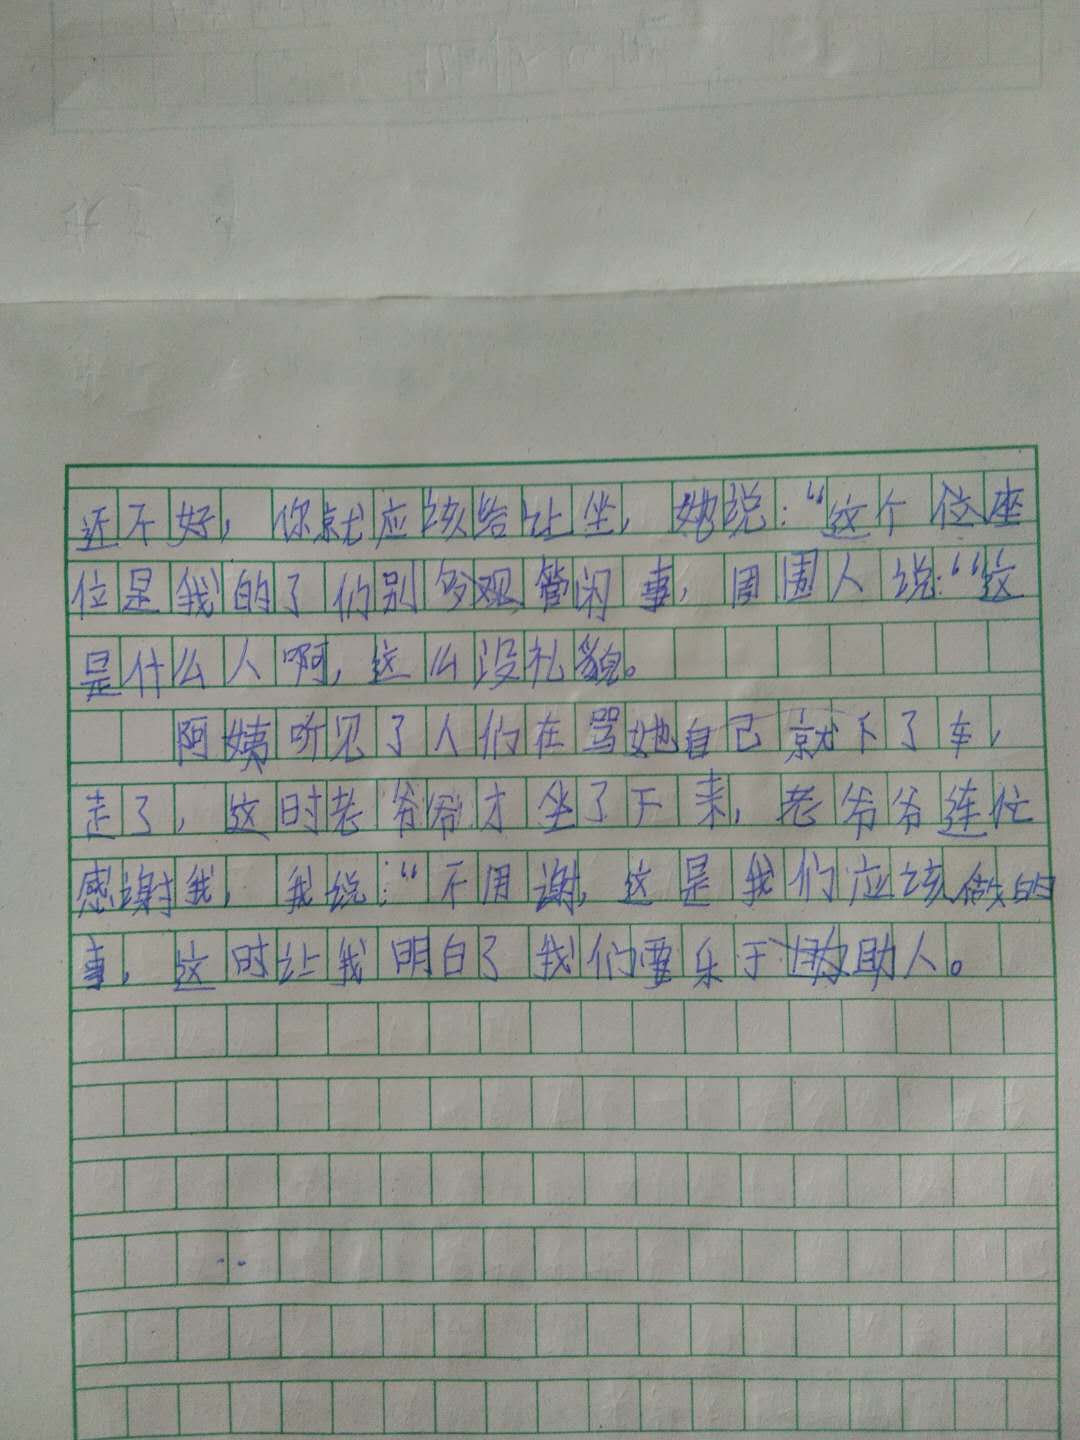 近不好，你就应该给让坐，她说：“这个位座
位是我的了你别多观管闲事，周围人说：“这
是什么人啊，这么没礼貌。
阿姨听见了人们在骂她自己就下了车，
走了，这时老爷爷才坐了下来，老爷爷连忙
感谢我，我说：“不用谢，这是我们应该做的
事，这时让我明白了我们要乐于助人。